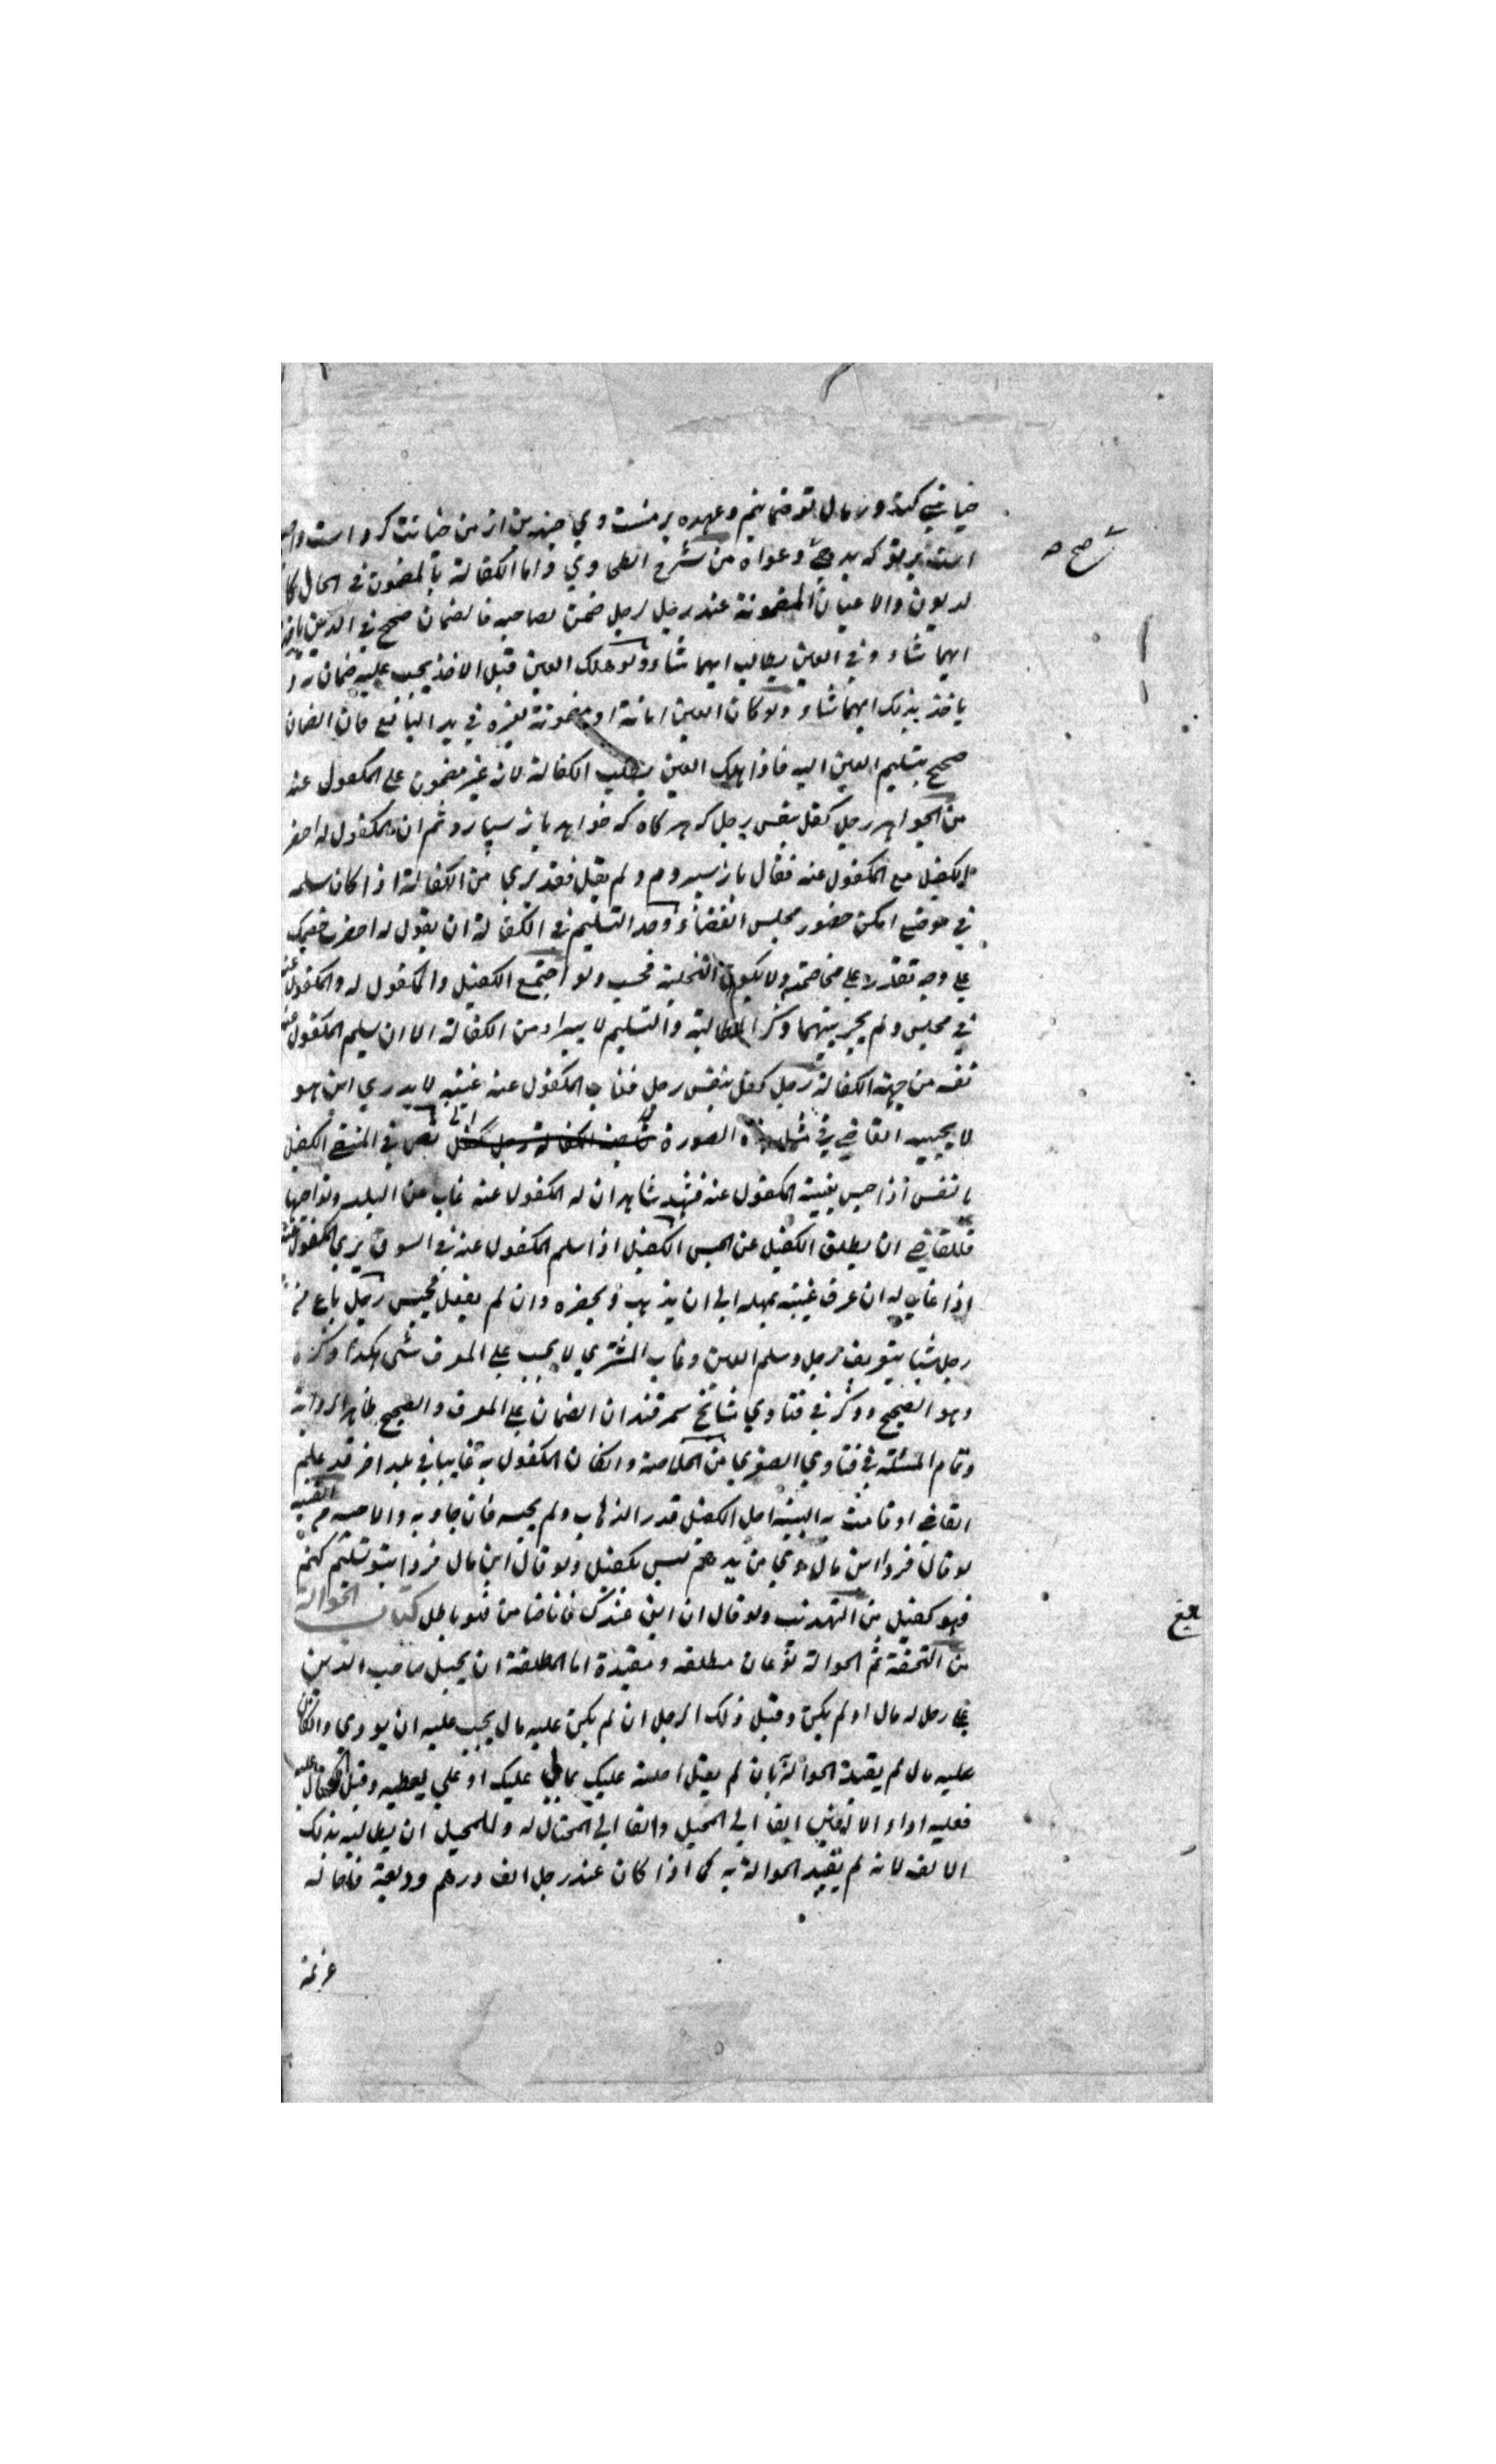 خیانتی کند در مال تو ضمانم وعهده بر منست وی چندین از من خیانت کرد است
است بر تو که بدهی دعواه من شرح الطحاوي واما الكفالة بالمضمون في الحال كا
لديون والاعيان المضمونة عند رجل لرجل ضمن لصاحبه فالضمان صحيح في الدين ياخذ
ايهما شاء وفي العين يطالب ايهما شاء ولو هلك العين قبل الاخذ يجب عليه ضمان
ياخذ بذلك ايهما شاء ولو كان العين امانة او مضمونة بغيره في يد البائع فان الضمان
صحيح بتسليم العين اليه فاذا هلك العين بطلت الكفالة لانه غير مضمون على المكفول عنه
من الجواهر رجل كفل بنفس رجل كه هر كاه كه خواهد باز سپارد ثم ان المكفول له احضر
الكفيل مع المكفول عنه فقال باز سپردم ولم يقبل فقد برئ من الكفالة اذا كان سلمه
في موضع امكن حضور مجلس القضاء وحد التسليم في الكفالة ان يقول له احضرت خصمك
على وجه تقدر على مخاصمته ولا يكون التخلية فحسب ولو اجتمع الكفيل والمكفول له والمكفول عنه
في مجلس ولم يجر بينهما ذكر المطالبة والتسليم لا يبرا من الكفالة الا ان سلم المكفول عنه
نفسه من جهة الكفالة رجل كفل بنفس رجل فغاب المكفول عنه غيبة لا يدري اين هو
لا يحبسه القاضي في مثل هذه الصورة نص في المنتقى الكفيل
بالنفس اذا حبس بغيبة المكفول عنه فشهد شاهدان له المكفول عنه غاب من البلد
فللقاضي ان يطلق الكفيل عن الحبس الكفيل اذا سلم المكفول عنه في السوق برئ المكفول عنه
اذا غاب له ان عرف غيبته يمهله الى ان يذهب ويحضره وان لم يفعل يحبس رجل باع من
رجل شيئا بتعريف رجل وسلم العين وغاب المشتري لا يجب على المعرف شئ هكذا ذكره
وهو الصحيح وذكر في فتاوي مشائخ سمرقند ان الضمان على المعرف والصحيح ظاهر الرواية
وتمام المسئلة في فتاوي الصغرى من الخلاصة وان كان المكفول به غايبا في بلد اخر قد علم
القاضي او قامت به البينة اجل الكفيل قدر الذهاب ولم يحبسه فان جاء به والا حبسه م القنية
لو قال فردا اين مال وي من بدهم ليس بكفيل ولو قال اين مال فردا بتو تسليم كنم
فهو كفيل من التهذيب ولو قال ان ابق عندك فانا ضامن فهو باطل كتاب الحوالة
من التحفة ثم الحوالة نوعان مطلقه ومقيدة اما المطلقة ان يحيل صاحب الدين
على رجل له مال او لم يكن وقبل ذلك الرجل ان لم يكن عليه مال يجب عليه ان يودي وان كان
عليه مال لم يقيد الحوالة بان لم يقل احلته عليك بمالي عليك او على يعطيه وقبل المحتال عليه
فعليه اداء الالفين الفا الى المحيل والفا الى المحتال له وللمحيل ان يطالبه بذلك
الالف لانه لم يقيد الحوالة به كما اذا كان عند رجل الف درهم وديعة فاحاله
غريمه